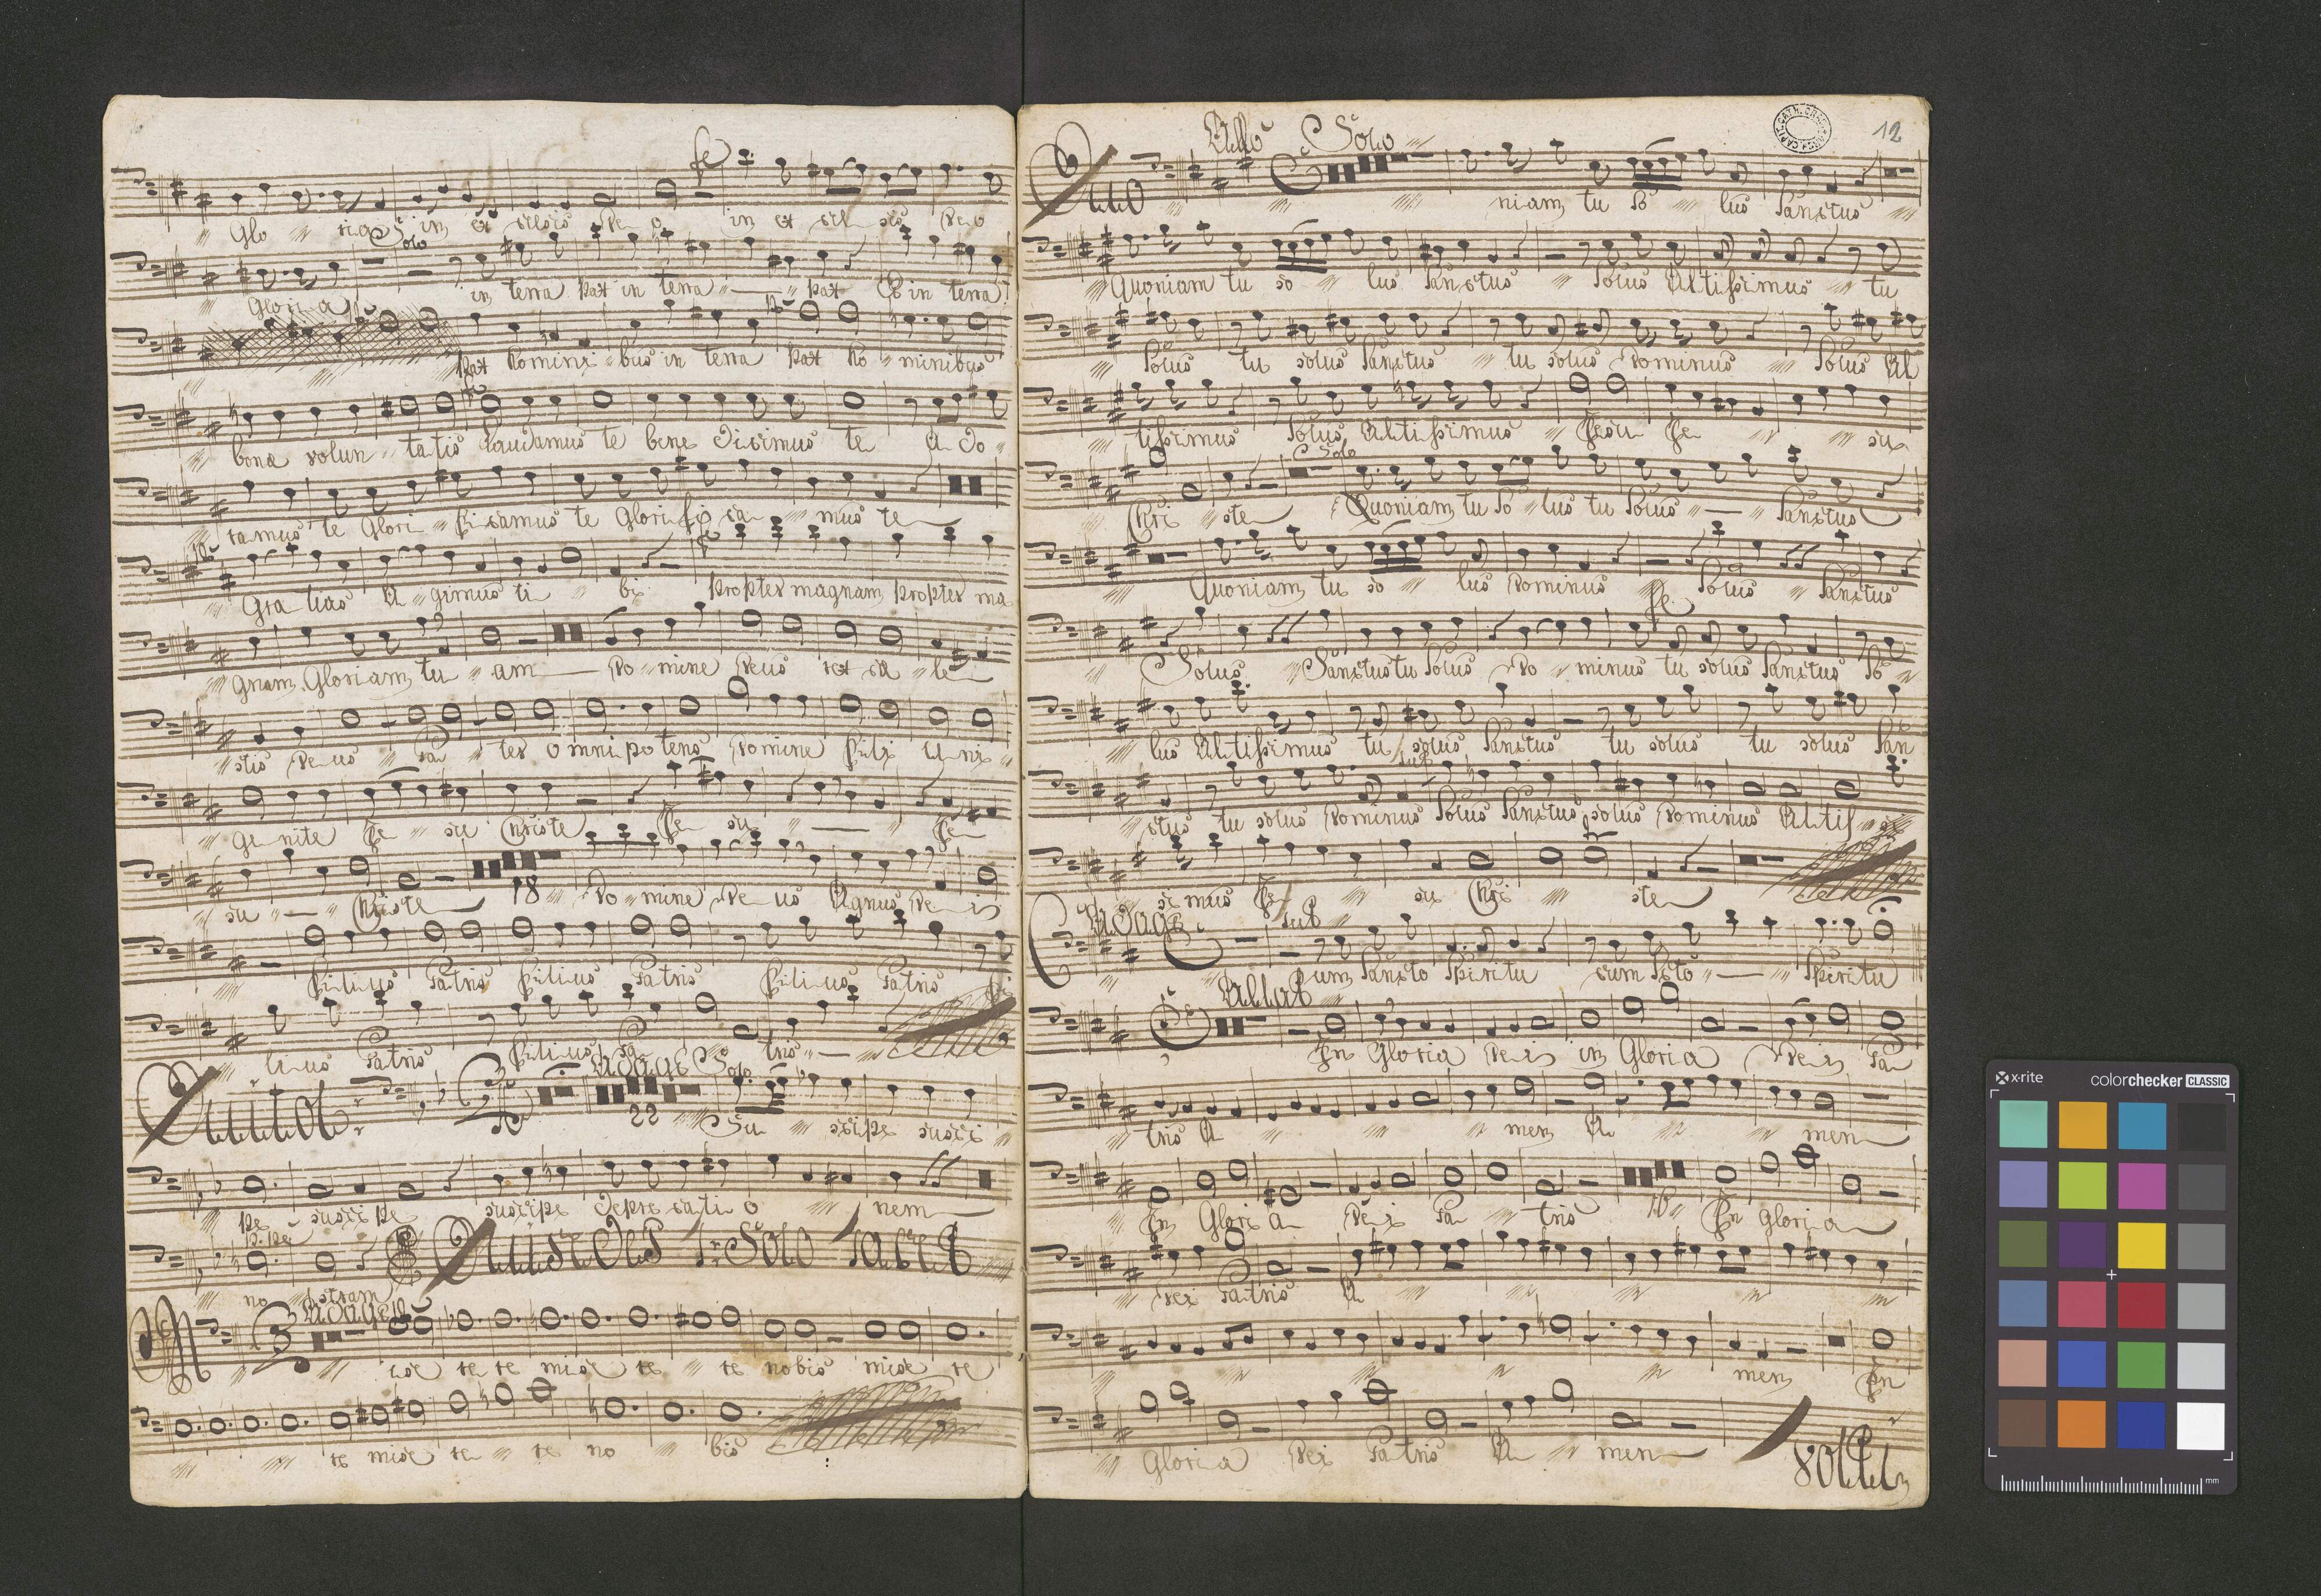 fe
Glo ri a in ex celsis De o in ex cel sis De o
Solo
Gloria in terra pax in terra pax Et in terra
pº
pax homini bus in terra pax ho minibus
fe
bonæ volun tatis Laudamus te bene dicimus te a do
ramus te Glori fi camus te Glorifi ca mus te
pº fe
Gra tias a gimus ti bi propter magnam propter ma
gnam Gloriam tu am Do mine Deus rex cæ le
stis De us Pa ter omnipotens Domine Fili uni
genite Je su Christe Je su Je
su Christe 18 Do mine De us Agnus De i
Filius Patris Filius Patris Filius Patris Fi
lius Patris Filius Pa tris
Adagº Solo
22 Su scipe susci
pe suscipe suscipe depre cati o nem
no stram
Solo
Adage
re re mise re re nobis mise re
re mise re re no bis
12
Allº Solo
niam tu so lus Sanctus
Quoniam tu so lus Sanctus solus Altissimus tu
solus tu solus Sanctus tu solus Dominus solus Al
tissimus solus Altissimus Jesu Je su
Solo
Chri ste Quoniam tu so lus tu solus Sanctus
Quoniam tu so lus Dominus solus Sanctus
fe
Solus Sanctus tu solus Do minus tu solus Sanctus so
lus Altissimus tu solus Sanctus tu solus tu solus San
ctus tu solus Dominus solus Sanctus solus Dominus Altis
simus Je su Chri ste
Cum Sancto Spiritu cum Scto Spiritu
In Gloria Dei in Gloria Dei Pa
tris A men A men
In Gloria Dei Pa tris 16 In gloria
Dei Patris A
men In
Gloria Dei Patris A men
volti
x·rite colorchecker CLASSIC
mm